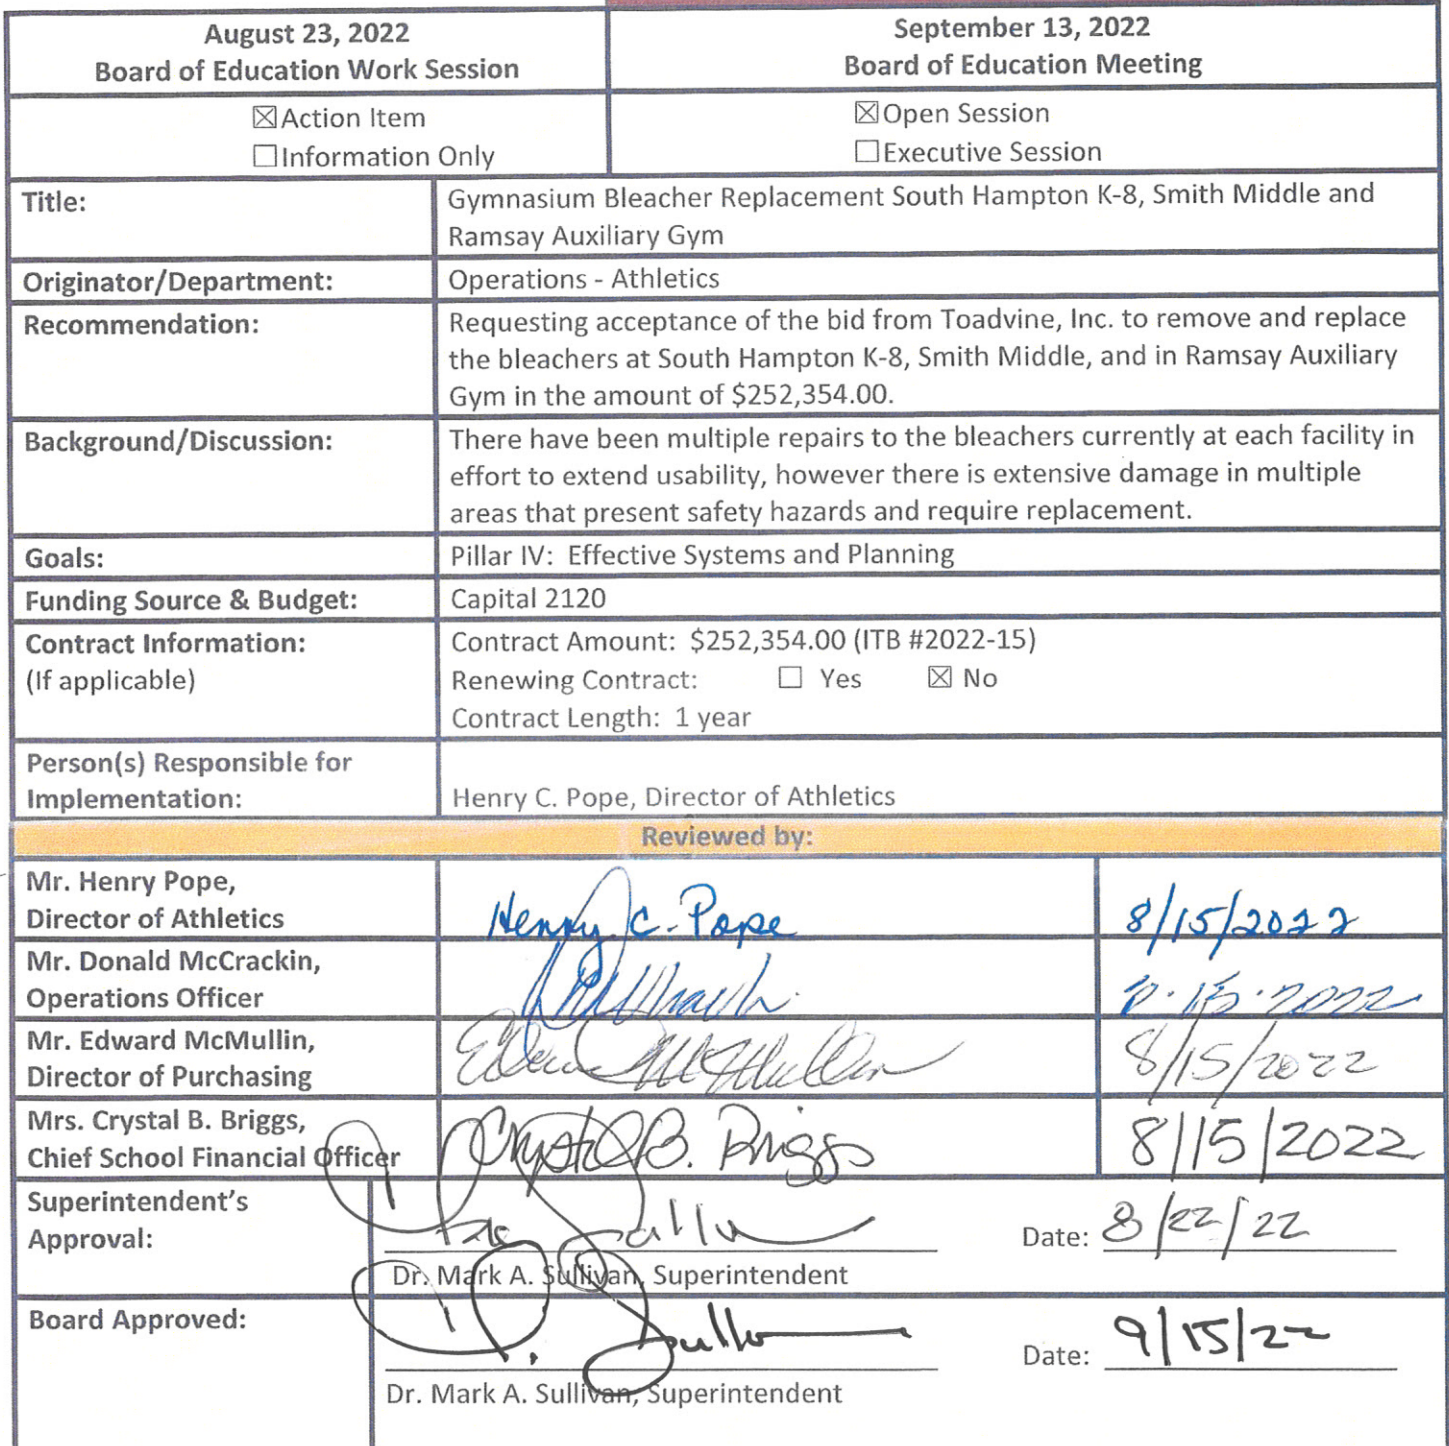 August 23, 2022
Board of Education Work Session
September 13, 2022
Board of Education Meeting
☒Action Item
☐Information Only
☒Open Session
☐Executive Session
Title:
Gymnasium Bleacher Replacement South Hampton K-8, Smith Middle and
Ramsay Auxiliary Gym
Originator/Department:
Operations - Athletics
Recommendation:
Requesting acceptance of the bid from Toadvine, Inc. to remove and replace
the bleachers at South Hampton K-8, Smith Middle, and in Ramsay Auxiliary
Gym in the amount of $252,354.00.
Background/Discussion:
There have been multiple repairs to the bleachers currently at each facility in
effort to extend usability, however there is extensive damage in multiple
areas that present safety hazards and require replacement.
Goals:
Pillar IV: Effective Systems and Planning
Funding Source & Budget:
Capital 2120
Contract Information:
(If applicable)
Contract Amount: $252,354.00 (ITB #2022-15)
Renewing Contract: ☐ Yes ☒ No
Contract Length: 1 year
Person(s) Responsible for
Implementation:
Henry C. Pope, Director of Athletics
Reviewed by:
Mr. Henry Pope,
Director of Athletics
Henry C. Pope
8/15/2022
Mr. Donald McCrackin,
Operations Officer
8.15.2022
Mr. Edward McMullin,
Director of Purchasing
Edward McMullin
8/15/2022
Mrs. Crystal B. Briggs,
Chief School Financial Officer
Crystal B. Briggs
8/15/2022
Superintendent's
Approval:
Date: 8/22/22
Dr. Mark A. Sullivan, Superintendent
Board Approved:
Date: 9/15/22
Dr. Mark A. Sullivan, Superintendent